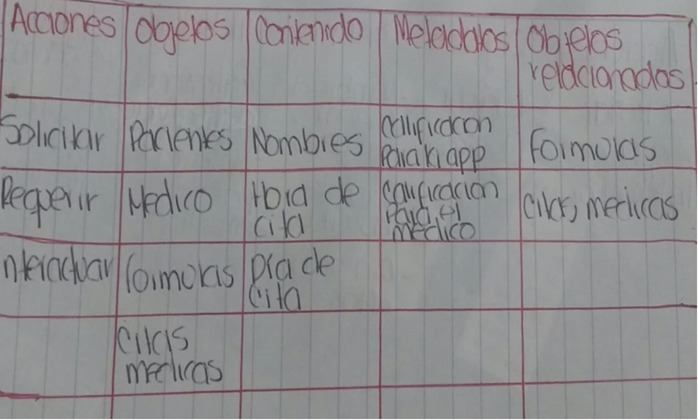 Acciones
Objetos
Contenido
Metadatos
Objetos
relacionados
Solicitar
Pacientes
Nombres
calificacion
para la app
Formulas
Requerir
Medico
Hora de
cita
calificacion
para el
medico
citas medicas
Interactuar
formulas
Dia de
cita
citas
medicas